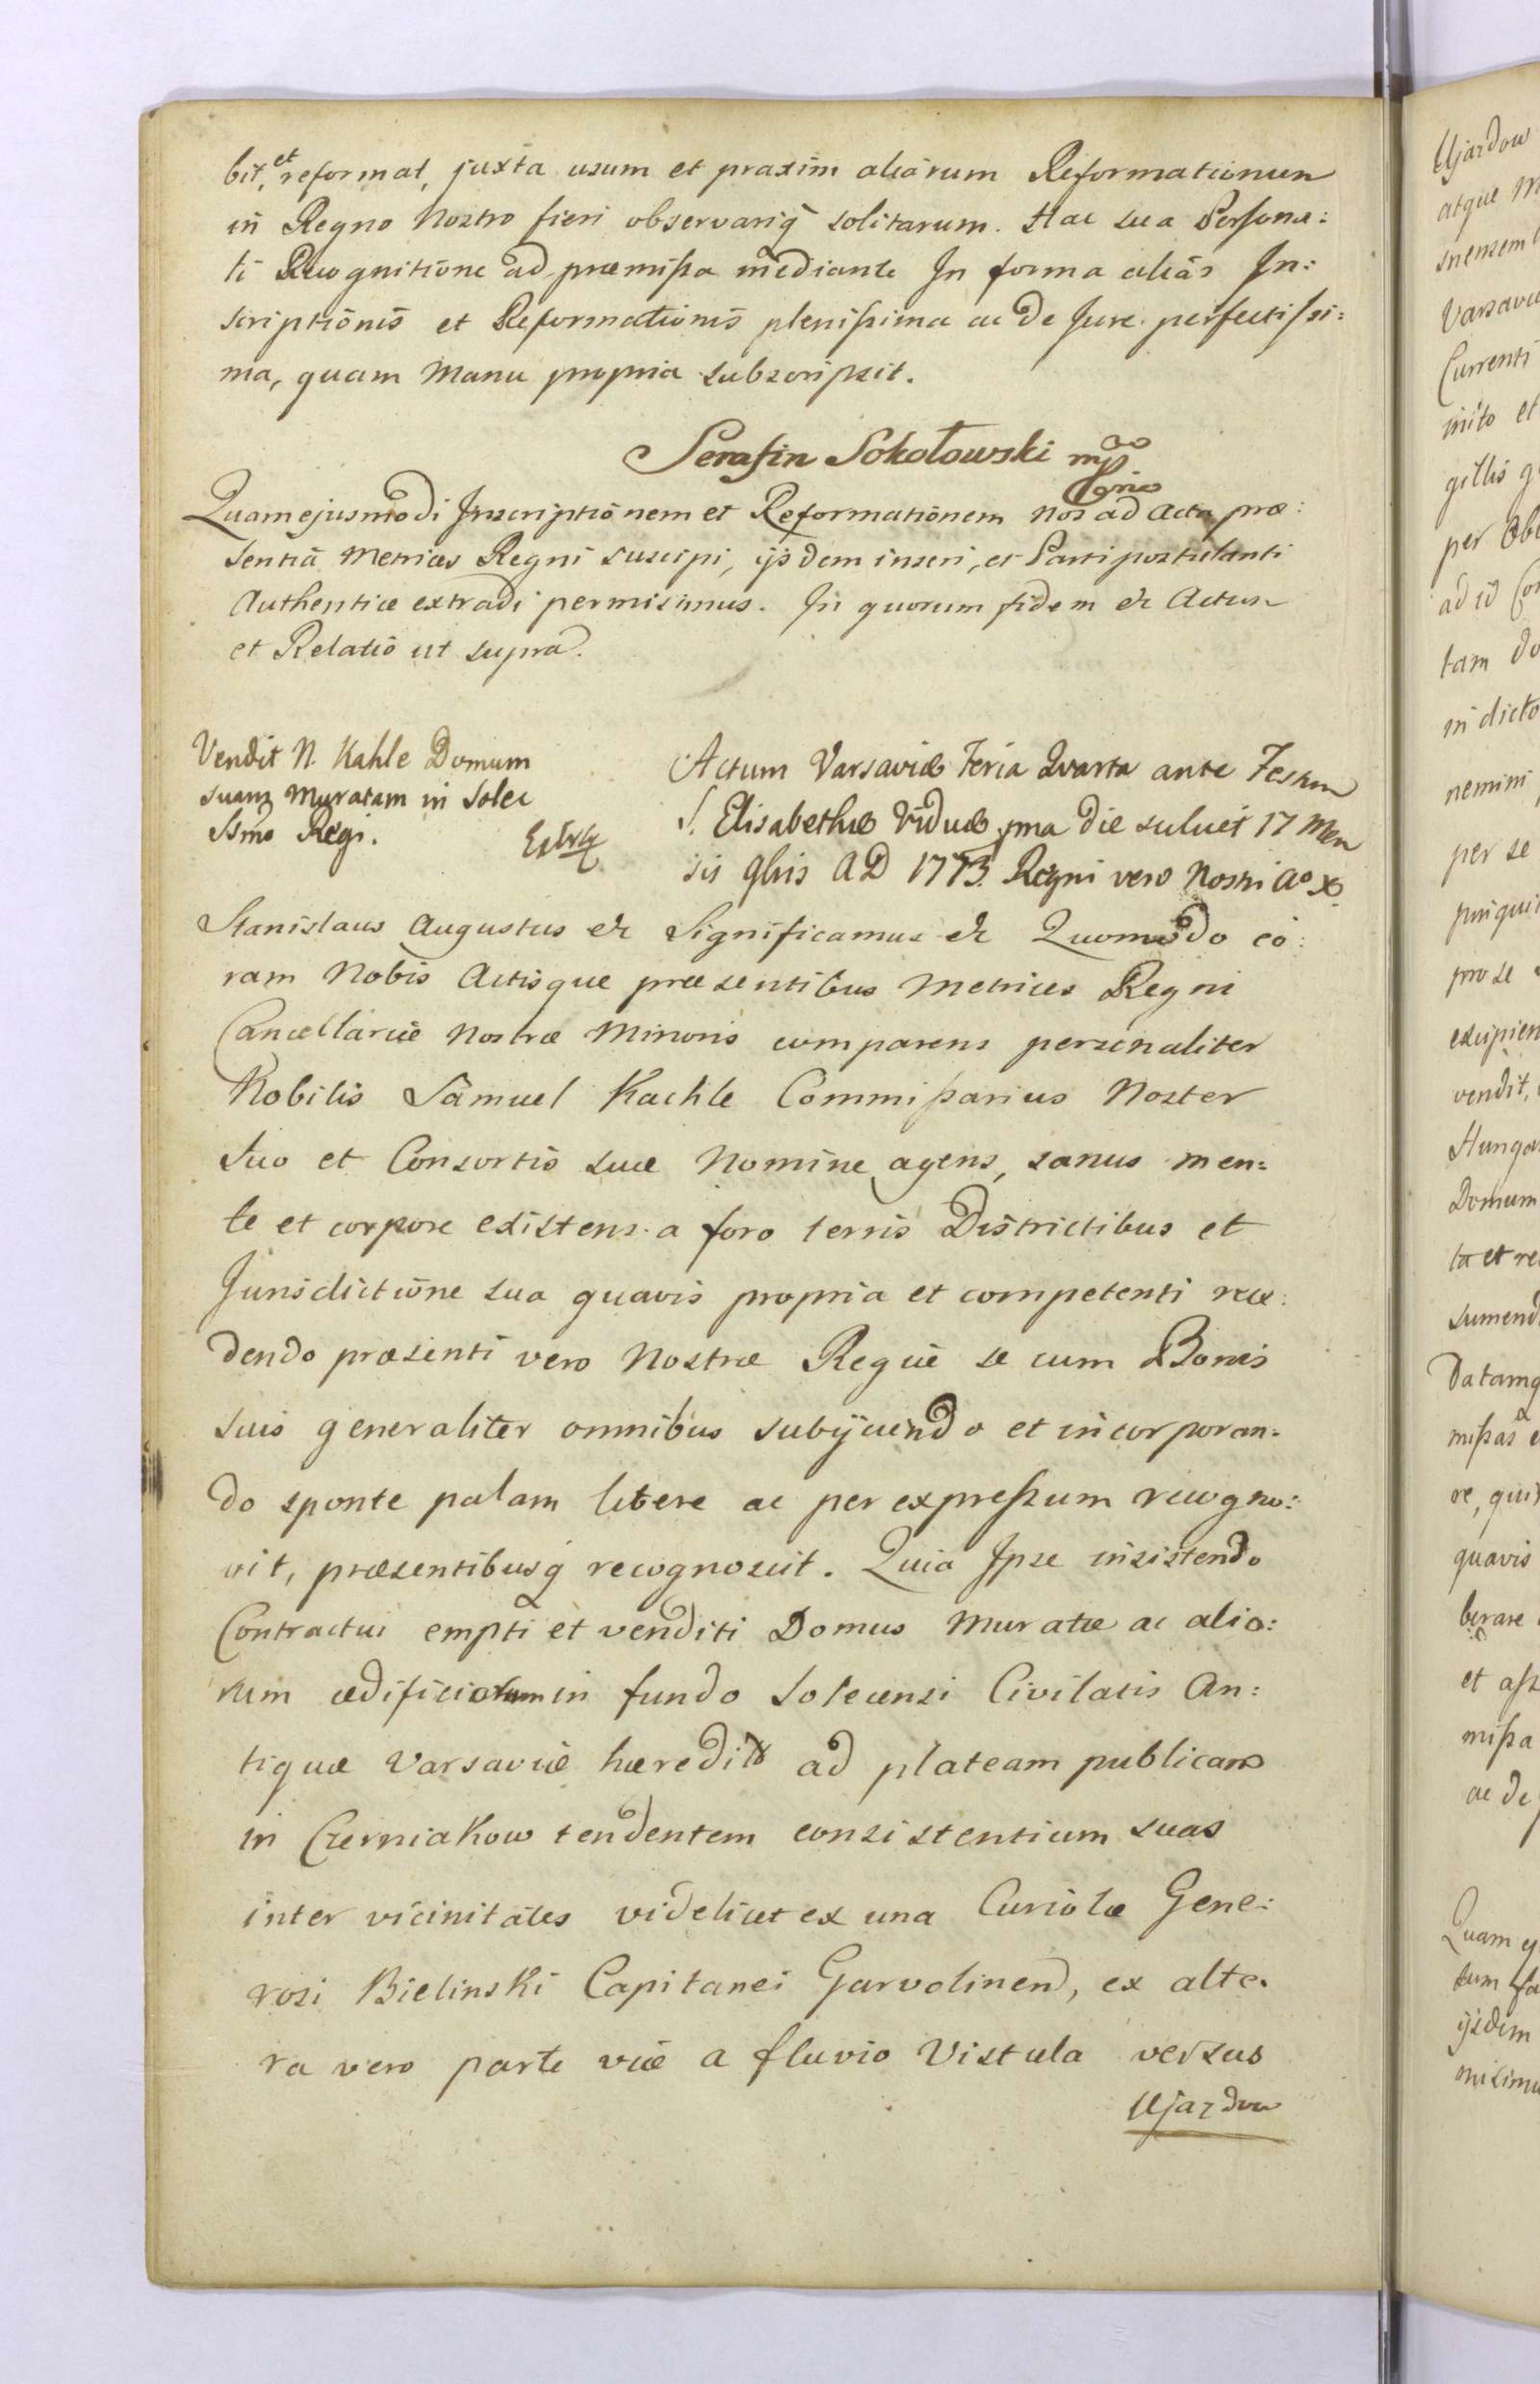 bit, et reformat, juxta usum et praxim aliarum Reformationum
in Regno Nostro fieri observariq̃ solitarum. Hac sua Persona:
li Recognitione ad præmißa mediante In forma aliàs In:
scriptionis et Reformationis plenißima ac de Jure perfectißi:
ma, quam Manu propria subscripsit.
Serafin Sokołowski mp
Quamejusmodi Inscriptionem et Reformationem Nos ad Acta præ:
sentia Metrices Regni suscipi, ijsdem inseri, et Parti postulanti
Authentice extradi permisimus. In quorum fidem &c Actum
et Relatio ut supra.
Vendit N. Kahle Domum
suam Muratam in Solec
Ssmo Regi.
Actum Varsaviæ Feria Quarta ante Festum
S. Elisabethæ Viduæ pma die scilicet 17 Men
sis 9bris AD 1773. Regni vero Nostri Aº X.
Stanislaus Augustus &c Significamus &c Quomodo co:
ram Nobis Actisque præsentibus Metrices Regni
Cancellariæ Nostræ Minoris comparens personaliter
Nobilis Samuel Kachle Commißarius Noster
Suo et Consortis suæ Nomine agens, sanus men:
te et corpore existens a foro terris Districtibus et
Jurisdictione sua quavis propria et competenti rece:
dendo præsenti vero Nostræ Regiæ se cum Bonis
suis generaliter omnibus subijciendo et incorporan:
do sponte palam libere ac per expreßum recogno:
vit, præsentibusq̃ recognoscit. Quia Ipse insistendo
Contractui empti et venditi Domus Muratæ ac alio:
rum ædificiorum in fundo Solecensi Civitatis An:
tiquæ Varsaviæ hæredit ad plateam publicam
in Czerniakow tendentem consistentium suas
inter vicinitates videlicet ex una Curiolæ Gene:
rosi Bielinski Capitanei Garvolinen, ex alte:
ra vero parte viæ a fluvio Vistula versus
Ujazdow
Ujazdow
atque
Varsavi
Currenti
inito et
gillis
per
ad id
tam
in dicto
nemini
per se
pro se
vendit,
Domum
ta et re
quavis
et
mißa
ac de
Quam
ijsdem